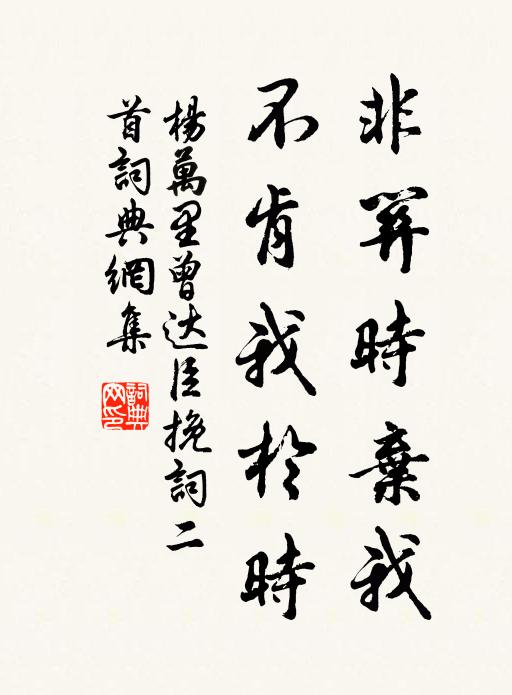 非關時棄我
不肯我於時
楊萬里曾达臣挽詞二
首詞典網集
詞典
网印